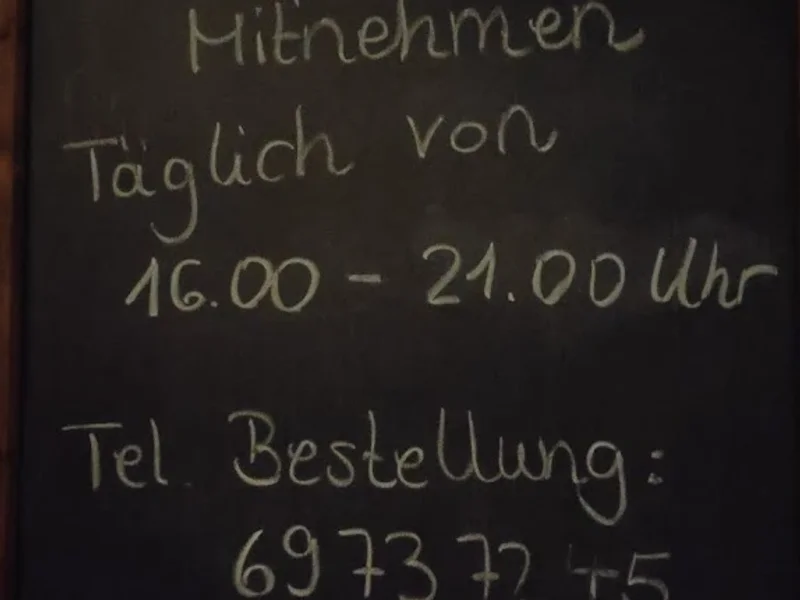 Mitnehmen
Täglich von
16.00 - 21.00 Uhr
Tel. Bestellung:
6973 72 45